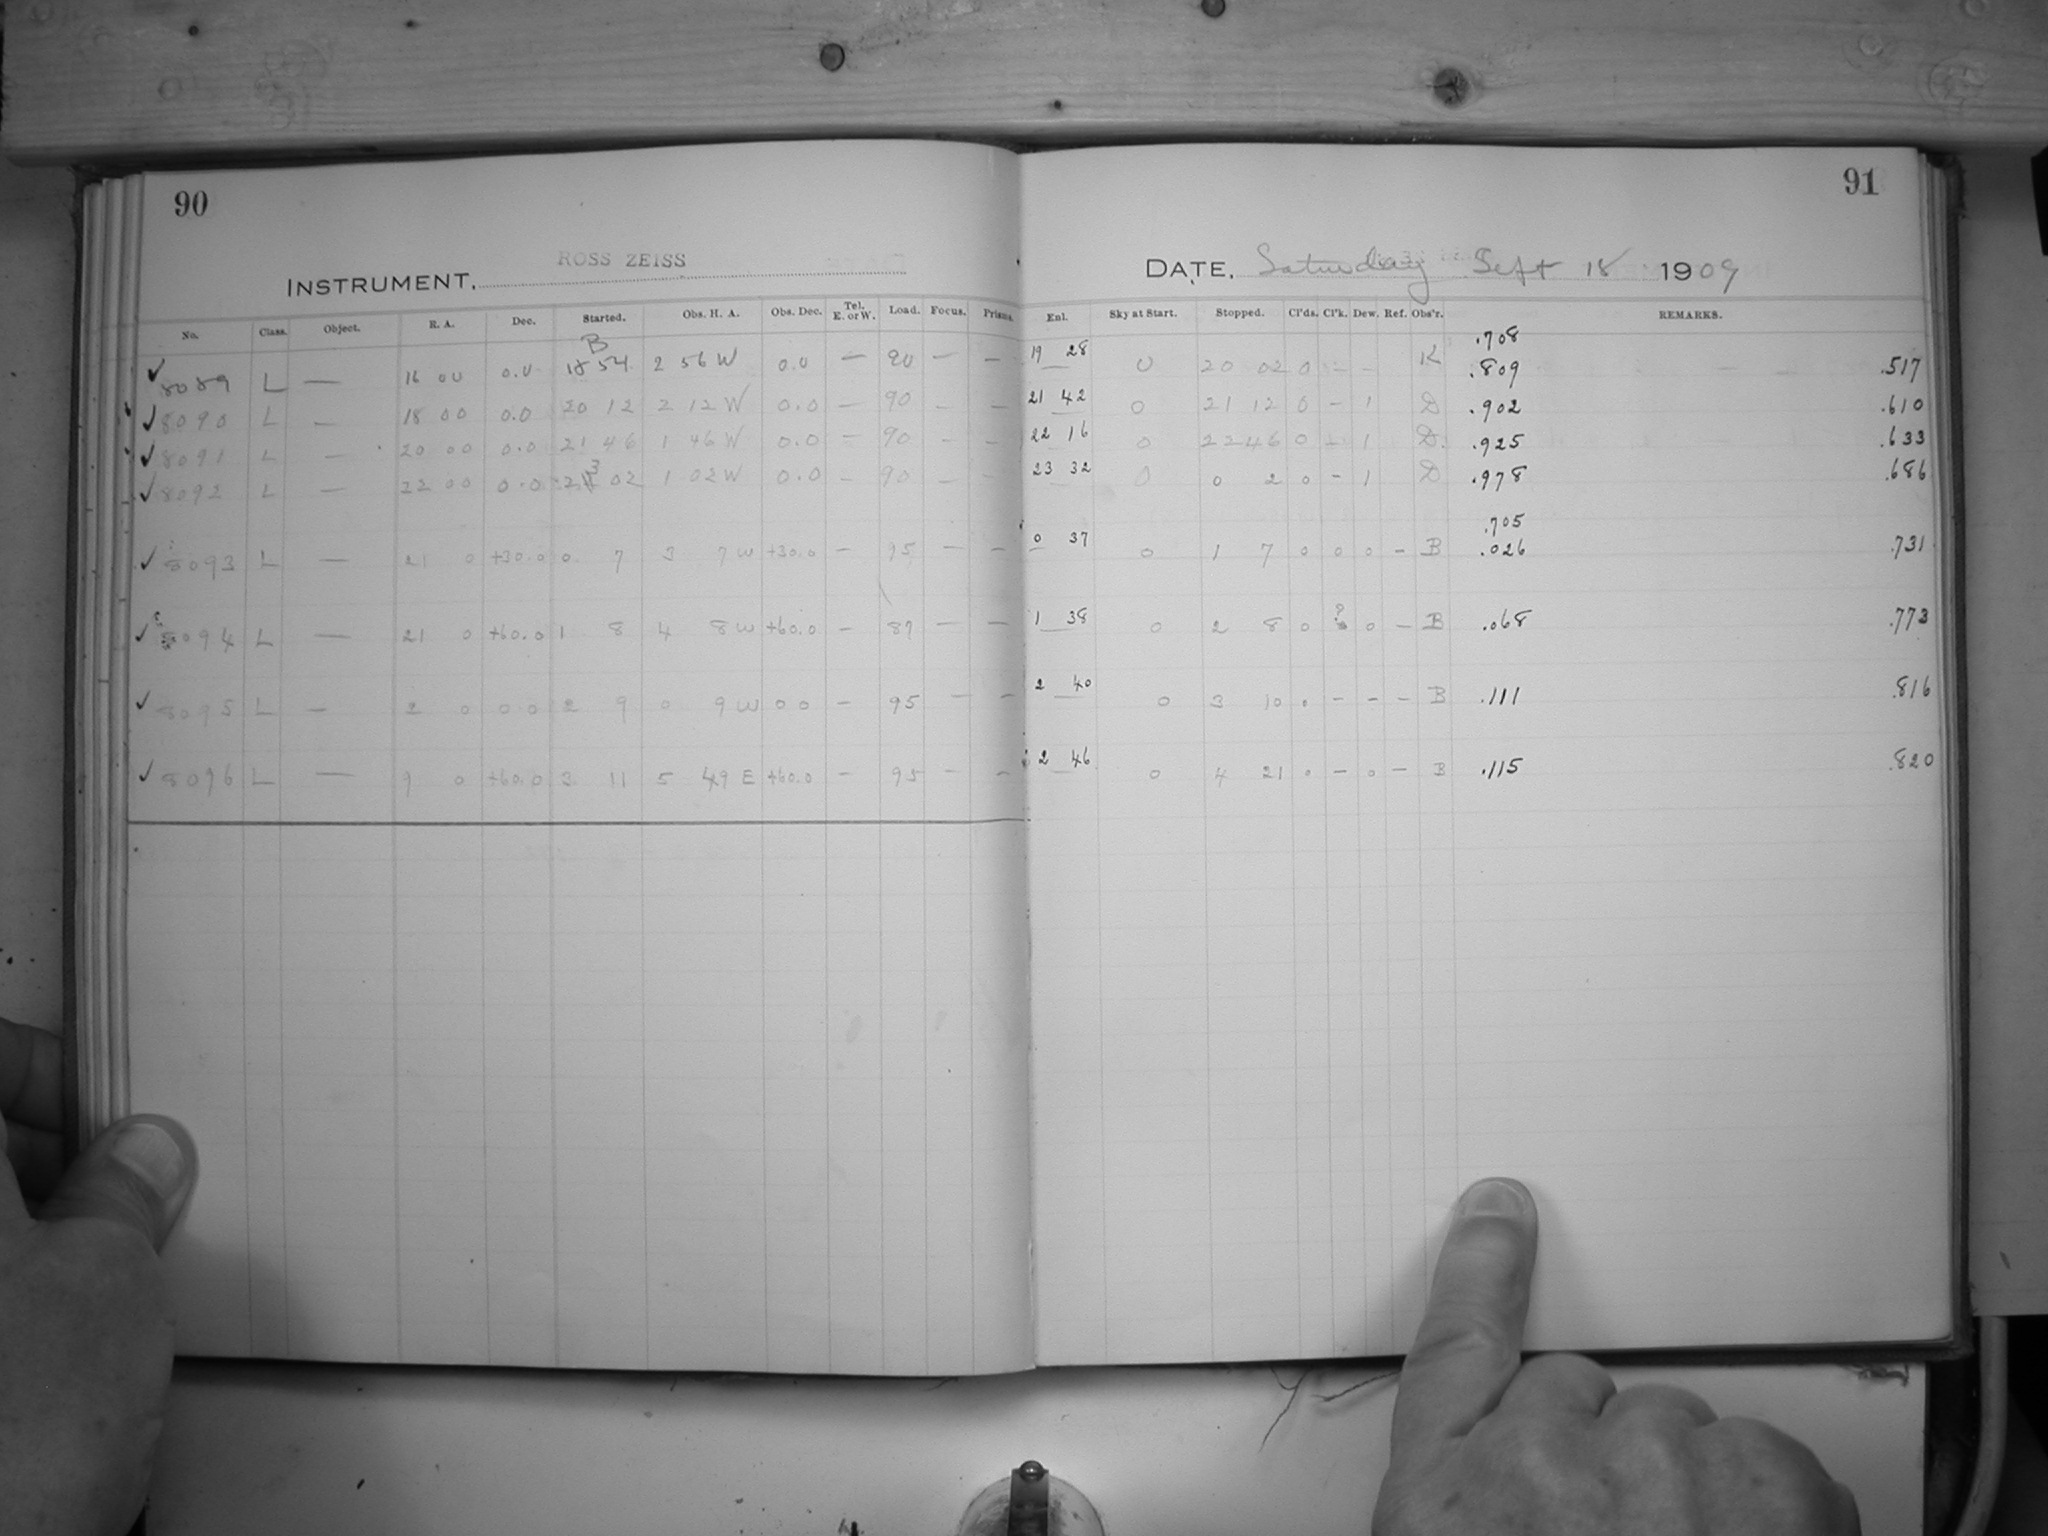 90
INSTRUMENT. ROSS ZEISS
No. Class. Object. R. A. Dec. Started. Obs. H. A. Obs. Dec. Tel. E. or W. Load. Focus. Prisms.
B
✓ 8089 L — 16 00 0.0 18 54 2 56 W 0.0 — 90 — —
✓ 8090 L — 18 00 0.0 20 12 2 12 W 0.0 — 90 — —
✓ 8091 L — 20 00 0.0 21 46 1 46 W 0.0 — 90 — —
✓ 8092 L — 22 00 0.0 23 02 1 02 W 0.0 — 90 — —
✓ 8093 L — 21 0 +30.0 0 7 3 7 W +30.0 — 95 — —
✓ 8094 L — 21 0 +60.0 1 8 4 8 W +60.0 — 87 — —
✓ 8095 L — 2 0 0.0 2 9 0 9 W 0 0 — 95 — —
✓ 8096 L — 9 0 +60.0 3 11 5 49 E +60.0 — 95 — —
91
DATE. Saturday Sept 18 1909
Enl. Sky at Start. Stopped. Cl'ds. Cl'k. Dew. Ref. Obs'r. REMARKS.
.708
19 28 0 20 02 0 — — K .809 .517
21 42 0 21 12 0 — 1 D .902 .610
22 16 0 22 46 0 — 1 D. .925 .633
23 32 0 0 2 0 — 1 D .978 .686
.705
0 37 0 1 7 0 0 0 — B .026 .731
1 38 0 2 8 0 ? 0 — B .068 .773
2 40 0 3 10 0 — — — B .111 .816
2 46 0 4 21 0 — 0 — B .115 .820